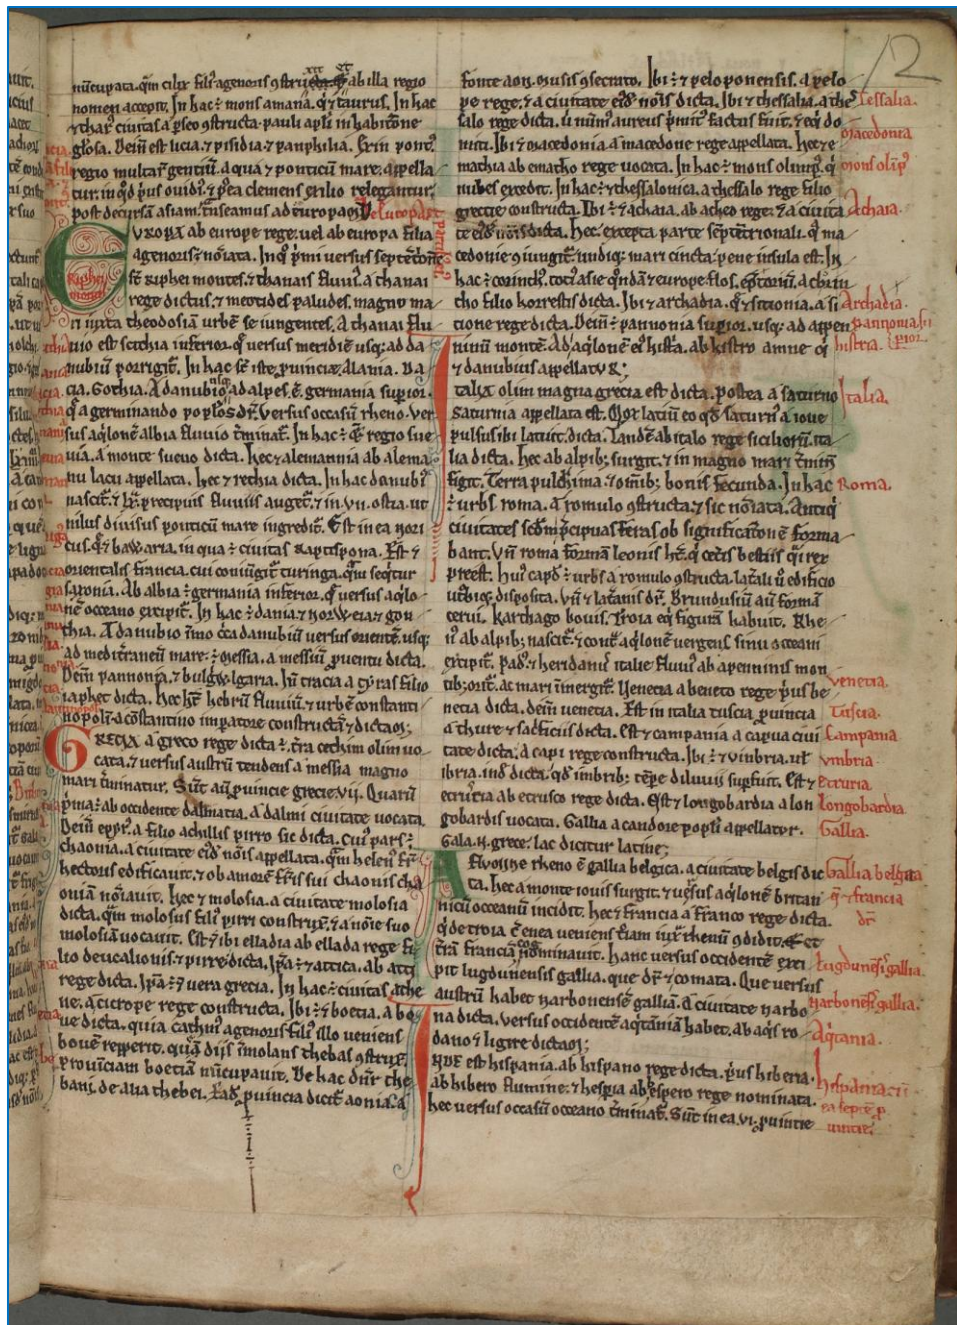 12
nūcupata. qm̄ cilix fili⁹ agenoris ꝯstruxit et ab illa regio
nomen accepit. In hac ÷ mons amana. q̄ ⁊ taurus. In hac
⁊ thars⁹ ciuitas a ꝑseo ꝯstructa. pauli apl̄i inhabitc̄one
gl̄osa. Dein̄ est licia. ⁊ pisidia ⁊ panphilia. Hrin pont⁹
regio multar̄ gentiū. a qua ⁊ ponticū mare. appella
tur. in q̄d pri⁹ ouidi⁹. ⁊ p⁹ea clemens exilio relegantur.
post decursā asiam. t̄nseamus ad europam. De europa
EVROPA ab europe rege. uel ab europa filia
agenoris ÷ nōiata. In q⁹ p̄mi uersus septēt̄onē
st̄ Riphei montes. ⁊ thanais fluui⁹. a thanai
Riphei montes
rege dictus. ⁊ meotides paludes. magno ma
ri iuxta theodosiā urbē se iungentes. A thanai flu
uio est scithia inferior. q̄ uersus meridiē usq; ad da
nubiū porrigit̄. In hac st̄ iste ꝓuincie. Alania. Da
cia. Gothia. A danubio usq; ad alpes. ē. germania suꝑior.
q̄ a germinando poplōs dr̄. Versus occasū rheno. ver
sus aq̄lonē albia fluuio t̄minat̄. In hac ÷ q̄ regio sue
uia. a monte sueuo dicta. Hec ⁊ alemannia ab alema
nu lacu appellata. hec ⁊ rechia dicta. In hac danubi⁹
nascit̄. ⁊ lx. precipuis fluuiis auget̄. ⁊ in. vii. ostia. ut
nilus diuisus ponticū mare ingredit̄. Est in ea nori
cus. q̄ ⁊ bawaria. in qua ÷ ciuitas Raptispona. Est ⁊
orientalis francia. cui coniūgit̄ turinga. qm̄ seq̄tur
saxonia. Ab albia ÷ germania inferior. q̄ uersus aq̄lo
nē oceano excipit̄. In hac ÷ dania. ⁊ norweia. ⁊ gou
thia. A danubio īmo c̄ca danubiū uersus orientē. usq;
ad medit̄raneū mare. ÷ messia. a messiū ꝓuentu dicta.
Dein̄ pannonia. ⁊ bulgaria. Hī tracia a tyras filio
iaphet dicta. hec hēt hebrū fluuiū ⁊ urbē constanti
nopolī. a cōstantino imꝑatore constructā ⁊ dictā;
GRECIA a greco rege dicta ÷. t̄ra cethim olim uo
cata. ⁊ uersus austrū tendens a messia magno
mari t̄minatur. Sūt aū ꝓuincie grecie. vij. Quarū
p̄ma ÷ ab occidente dalmatia. a dalmi ciuitate uocata.
Dein̄ epyr⁹. a filio achillis pirro sic dicta. cui⁹ pars ÷
chaonia. a ciuitate ei⁹d̄ nōis appellata. quā helen⁹ fr̄
hectoris edificauit. ⁊ ob amorē fr̄is sui chaonis cha
oniā nōiauit. hec ⁊ molosia. a ciuitate molosia
dicta. qm̄ molosus fili⁹ pirri construx̄. ⁊ a nōie suo
molosiā uocauit. Est ⁊ ibi elladia ab ellada rege fi
lio deucalionis. ⁊ pirre. dicta. Ip̄a ÷ ⁊ attica. ab atti
rege dicta. Ip̄a ÷ ⁊ uera grecia. In hac ÷ ciuitas athe
ne. a cicrope rege constructa. Ibi ÷ ⁊ boetia. a bo
ue dicta. quia cathm⁹ agenoris fili⁹ illo ueniens
bouē repperit. quā dijs īmolans thebas ꝯstrux̄.
prouīciam boetiā nūcupauit. De hac dnr̄ the
bani. de alia thebei. Ead̄ ꝓuincia dicit̄ aonia. a
fonte aon. musis ꝯsecrato. Ibi ÷ ⁊ peloponensis. a pelo
pe rege. ⁊ a ciuitate ei⁹d̄ nōis dicta. Ibi ⁊ thessalia. a the
salo rege dicta. ū nūm⁹ aureus p̄mit⁹ factus fuit. ⁊ eq̄ do
miti. Ibi ⁊ macedonia a macedone rege appellata. Hec ⁊ e
mathia ab ematho rege uocata. In hac ÷ mons olimp⁹. q̄
nubes excedit. In hac ÷ ⁊ thessalonica. a thessalo rege filio
grecie constructa. Ibi ÷ ⁊ achaia. ab acheo rege. ⁊ a ciuita
te ei⁹d̄ nōis dicta. Hec. excepta parte septēt̄rionali. q̄ ma
cedonie ꝯiungit̄. undiq; mari cincta. pene insula est. In
hac ÷ corinth⁹. toti⁹ asie q̄ndā ⁊ europe flos. a corin
tho filio horrestis dicta. Ibi ⁊ archadia. q̄ ⁊ sitionia. a si
tione rege dicta. Dein̄ ÷ pannonia suꝑior. usq; ad appen
ninū montē. Ad aq̄lonē ei⁹ hist̄a. ab histro amne q̄
⁊ danubius appellatur;
ITALIA olim magna grecia est dicta. postea a saturno
saturnia appellata est. Mox latiū eo qd̄ saturn⁹ a ioue
pulsus ibi latuit. dicta. Tandē ab italo rege siciliorū. ita
lia dicta. hec ab alpib; surgit. ⁊ in magno mari t̄minū
figit. Terra pulch̄ima. ⁊ omīb; bonis fecunda. In hac
÷ urbs roma. a romulo ꝯstructa. ⁊ sic nōiata. Antiq̄
ciuitates scd̄m p̄cipuas feras ob significatōnē forma
bant. Vn̄ roma formā leonis hēt. q̄ cet̄is bestiis q̄si rex
preest. hui⁹ capd̄ ÷ urbs a romulo ꝯstructa. lat̄ali ū edificio
ut̄biq; disposita. Vn̄ ⁊ lat̄anis dr̄. Brundusiū aū formā
cerui. Karthago bouis. Troia eq̄ figurā habuit. Rhe
n⁹ ab alpib; nascit̄. ⁊ cont̄ aq̄lonē uergens sinu oceani
excipit̄. Pad⁹. ⁊ heridan⁹ italie fluui⁹ ab apenninis mon
tib; orit̄. ac mari imergit̄. Venecia a beneto rege pri⁹ be
necia dicta. dein̄ uenecia. Est in italia tuscia ꝓuincia
a thure ⁊ sac̄ficiis dicta. Est ⁊ campania a capua ciui
tate dicta. a capi rege constructa. Ibi ÷ ⁊ vmbria. ul̄
ibria. ind̄ dicta. qd̄ imbrib; tēꝑe diluuij suꝑfuit. Est ⁊
etruria ab etrusco rege dicta. Est ⁊ longobardia a lon
gobardis uocata. Gallia a candore popl̄i appellatur.
Gala. n̄. grece. lac dicitur latine;
A fluuine rheno ē gallia belgica. a ciuitate belgis dic
ta. hec a monte iouis surgit. ⁊ uersus aq̄lonē britan
nicū occeanū incidit. hec ⁊ francia a franco rege dicta.
q̄ de troia c̄ enea ueniens c̄iam iux̄ rhenū ꝯdidit. Et
t̄rā franciā cognominauit. hanc uersus occidentē exci
pit lugdunensis gallia. que dr̄ ⁊ comata. Que uersus
austrū habet narbonensē galliā. a ciuitate narbo
na dicta. Versus occidentē aq̄taniā habet. ab aq̄s ro
dano ⁊ ligire dictam;
INDE est hispania. ab hispano rege dicta. pri⁹ hiberia.
ab hibero flumine. ⁊ hesꝑia ab hespero rege nominata.
hec uersus occasū oceano t̄minat̄. Sūt in ea. vi. ꝓuintie
Tessalia.
Macedonia
mons olīp⁹
Achaia.
Archadia.
pannonia su
ꝑior.
histria.
Italia.
Roma.
Venetia.
Tuscia.
Campania
vmbria.
etruria
Longobardia.
Gallia.
Gallia belgica
q̄ ⁊ francia
dr̄
Lugdunēs⁹ gallia.
Narbonēs⁹ gallia.
Aq̄tania.
hispania ci⁹
ea septē ꝓ
uintie.